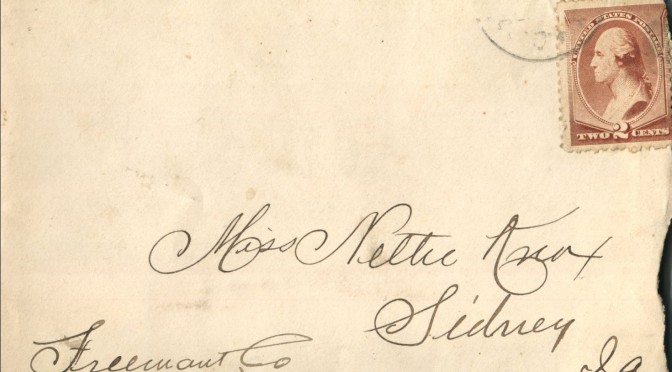 UNITED STATES POSTAGE
TWO 2 CENTS
Miss Nettie Knox
Sidney
Freemont Co
Ia